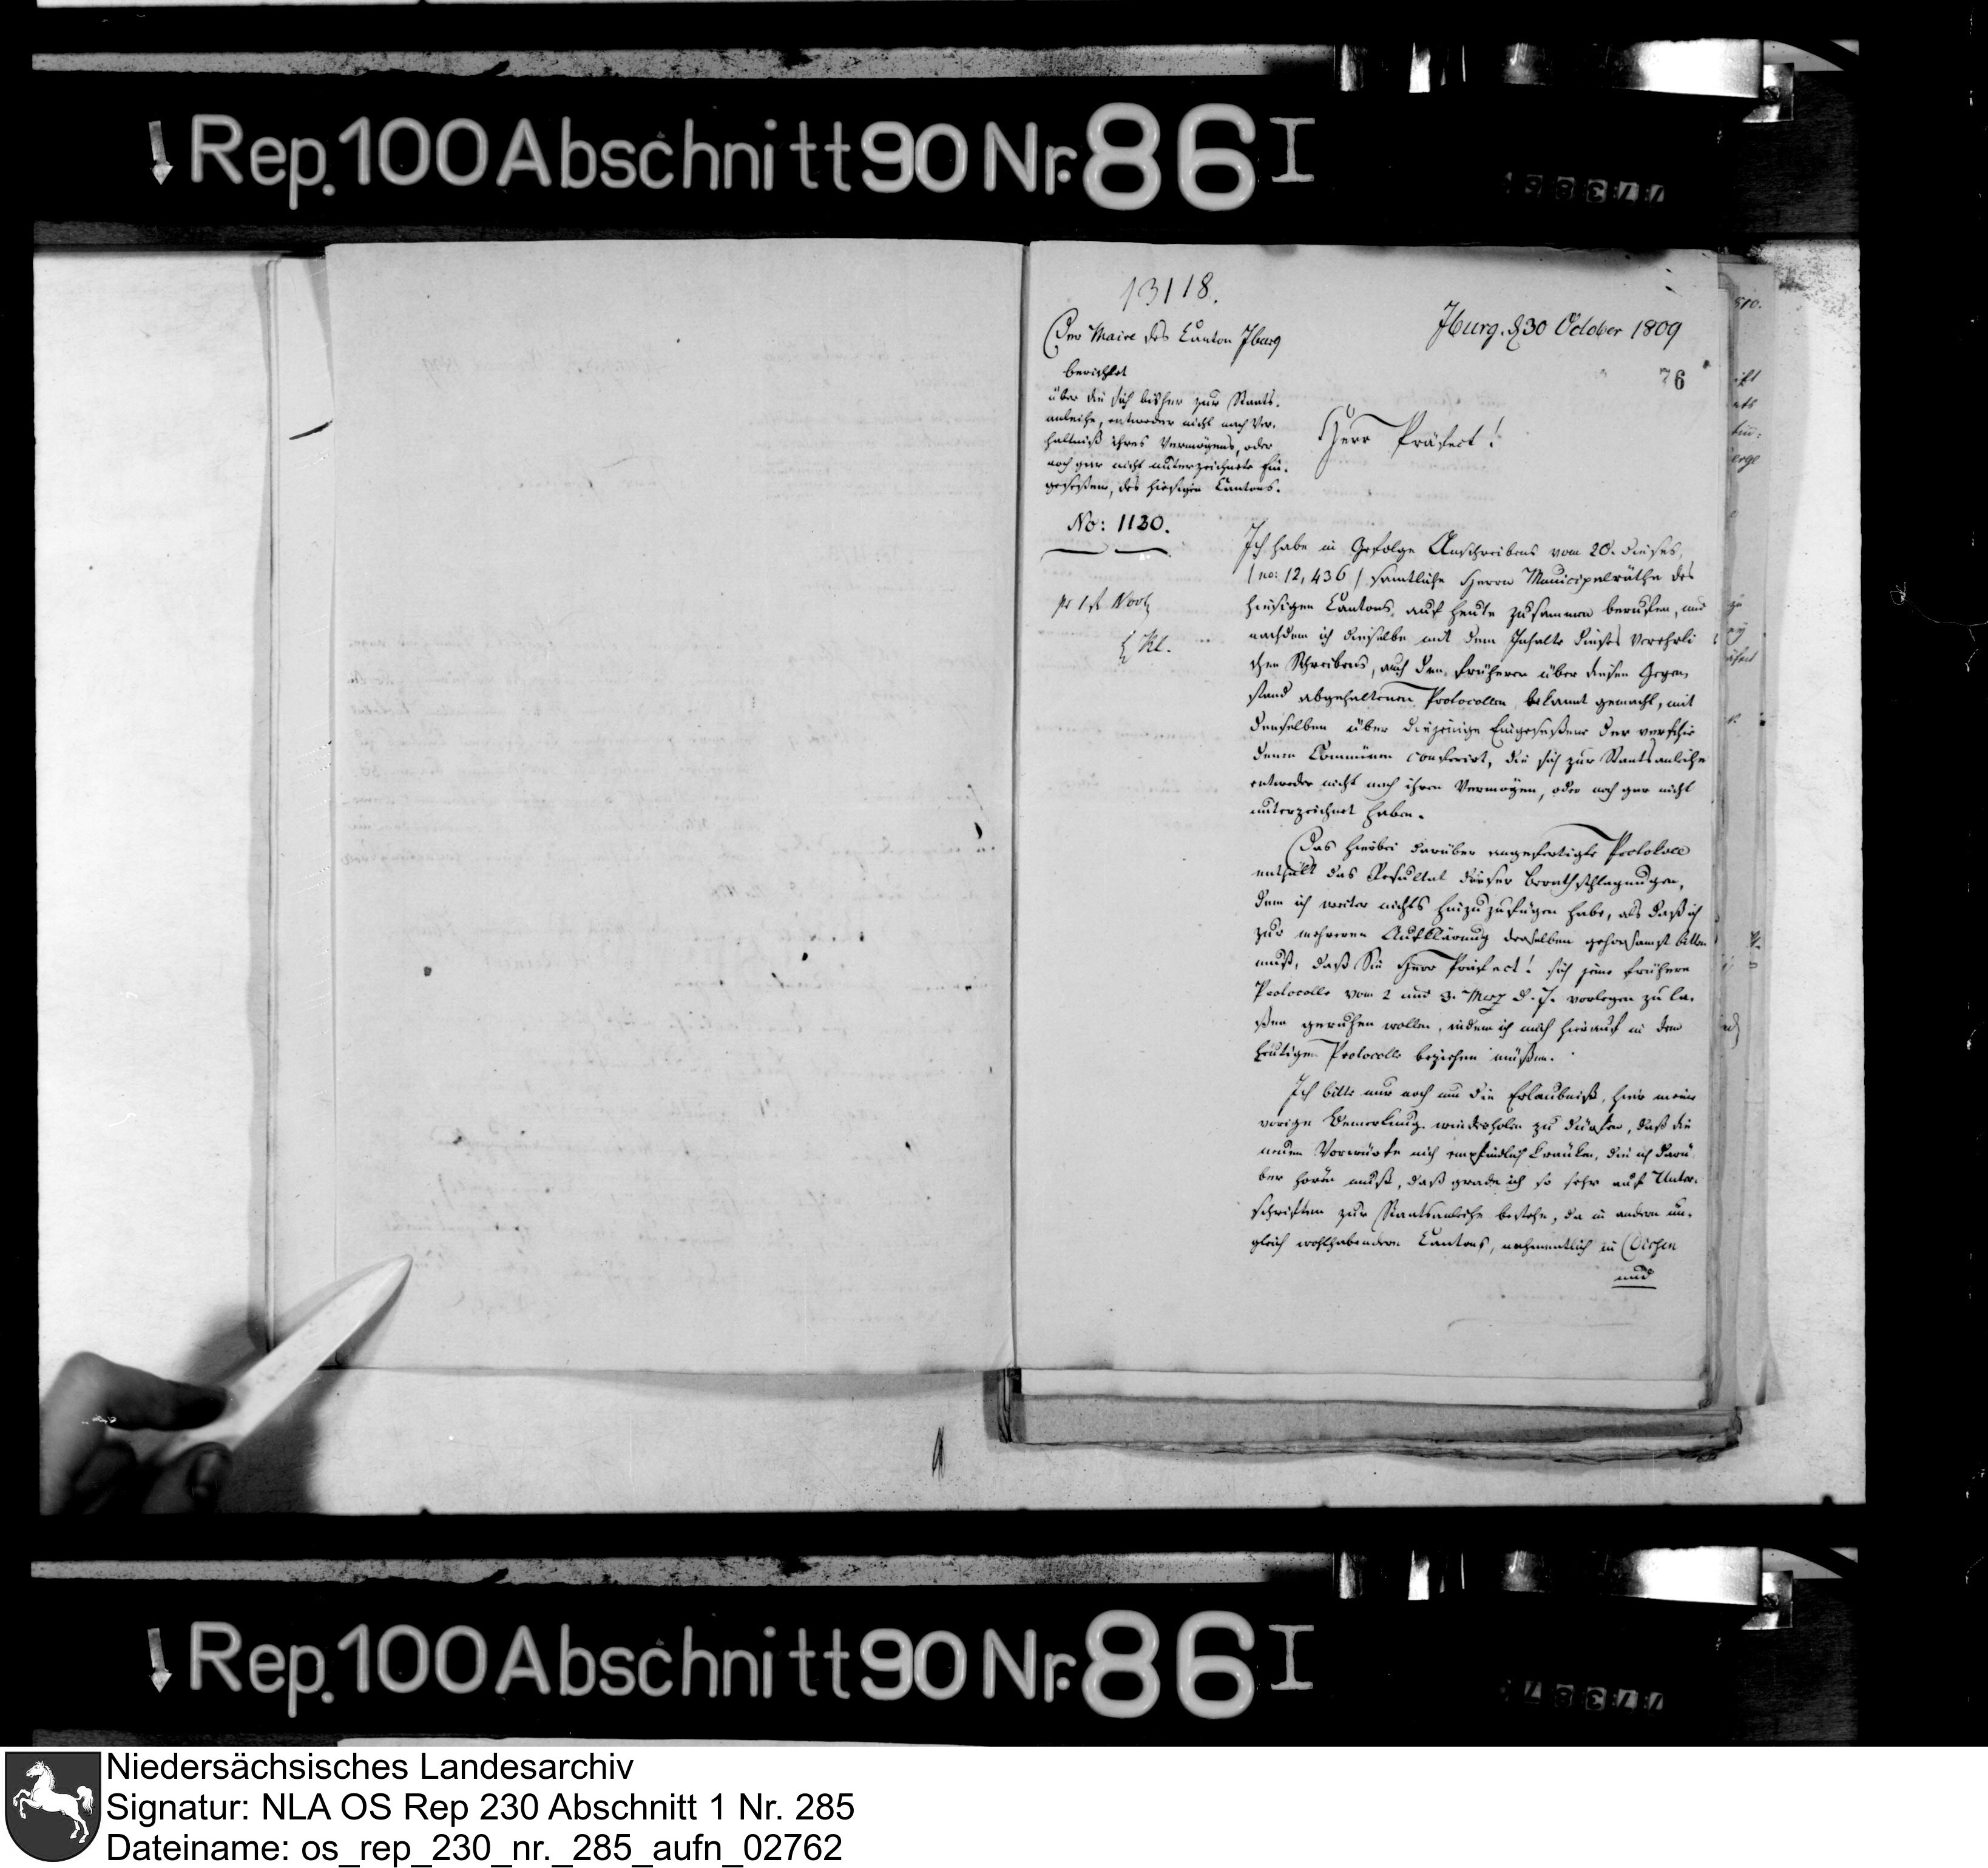 Rep. 100 Abschnitt 90 Nr. 86 I
13118.
Der Maire des Canton Iburg
berichtet
über die sich bisher zur Staats-
anleihe, entweder nicht nach Ver-
hältniß ihres Vermögens, oder
noch gar nicht unterzeichnete Ein-
geseßene, des hiesigen Cantons.
No: 1130.
Iburg. d 30 October 1809
76
Herr Präfect!
Ich habe in Gefolge Anschreibens vom 20. dieses,
/ no: 12,436 / samtliche Herrn Municipalräthe des
hiesigen Cantons, auf heute zusammen berufen, und
nachdem ich dieselbe mit dem Inhalte dieses verehrli
chen Schreibens, auch den früheren über diesen Gegen
stand abgehaltenen Protocollen bekannt gemacht, mit
denselben über diejenige Eingeseßene der verschie
denen Communen conferirt, die sich zur Staatsanleihe
entweder nicht nach ihren Vermögen, oder noch gar nicht
unterzeichnet haben.
Das hierbei darüber angefertigte Protokoll
enthält das Resultat dieser Berathschlagungen,
dem ich weiter nichts hinzuzufügen habe, als daß ich
zur mehreren Aufklärung desselben gehorsamst bitten
muß, daß Sie Herr Präfect! sich jene frühere
Protocolle vom 2 und 3. Merz d. J. vorlegen zu la-
ßen geruhen wollen, indem ich mich hierauf in dem
heutigen Protocolle beziehen müßen.
Ich bitte nur noch um die Erlaubniß, hier meine
vorige Bemerkung wiederholen zu dürfen, daß die
neuen Vorwürfe mich empfindlich kränken, die ich darü
ber hören muß, daß grade ich so sehr auf Unter-
schriften zur Staatsanleihe bestehe, da in andern un-
gleich wohlhabendern Cantons, nahmentlich in Dissen
und
Rep. 100 Abschnitt 90 Nr. 86 I
Niedersächsisches Landesarchiv
Signatur: NLA OS Rep 230 Abschnitt 1 Nr. 285
Dateiname: os_rep_230_nr._285_aufn_02762